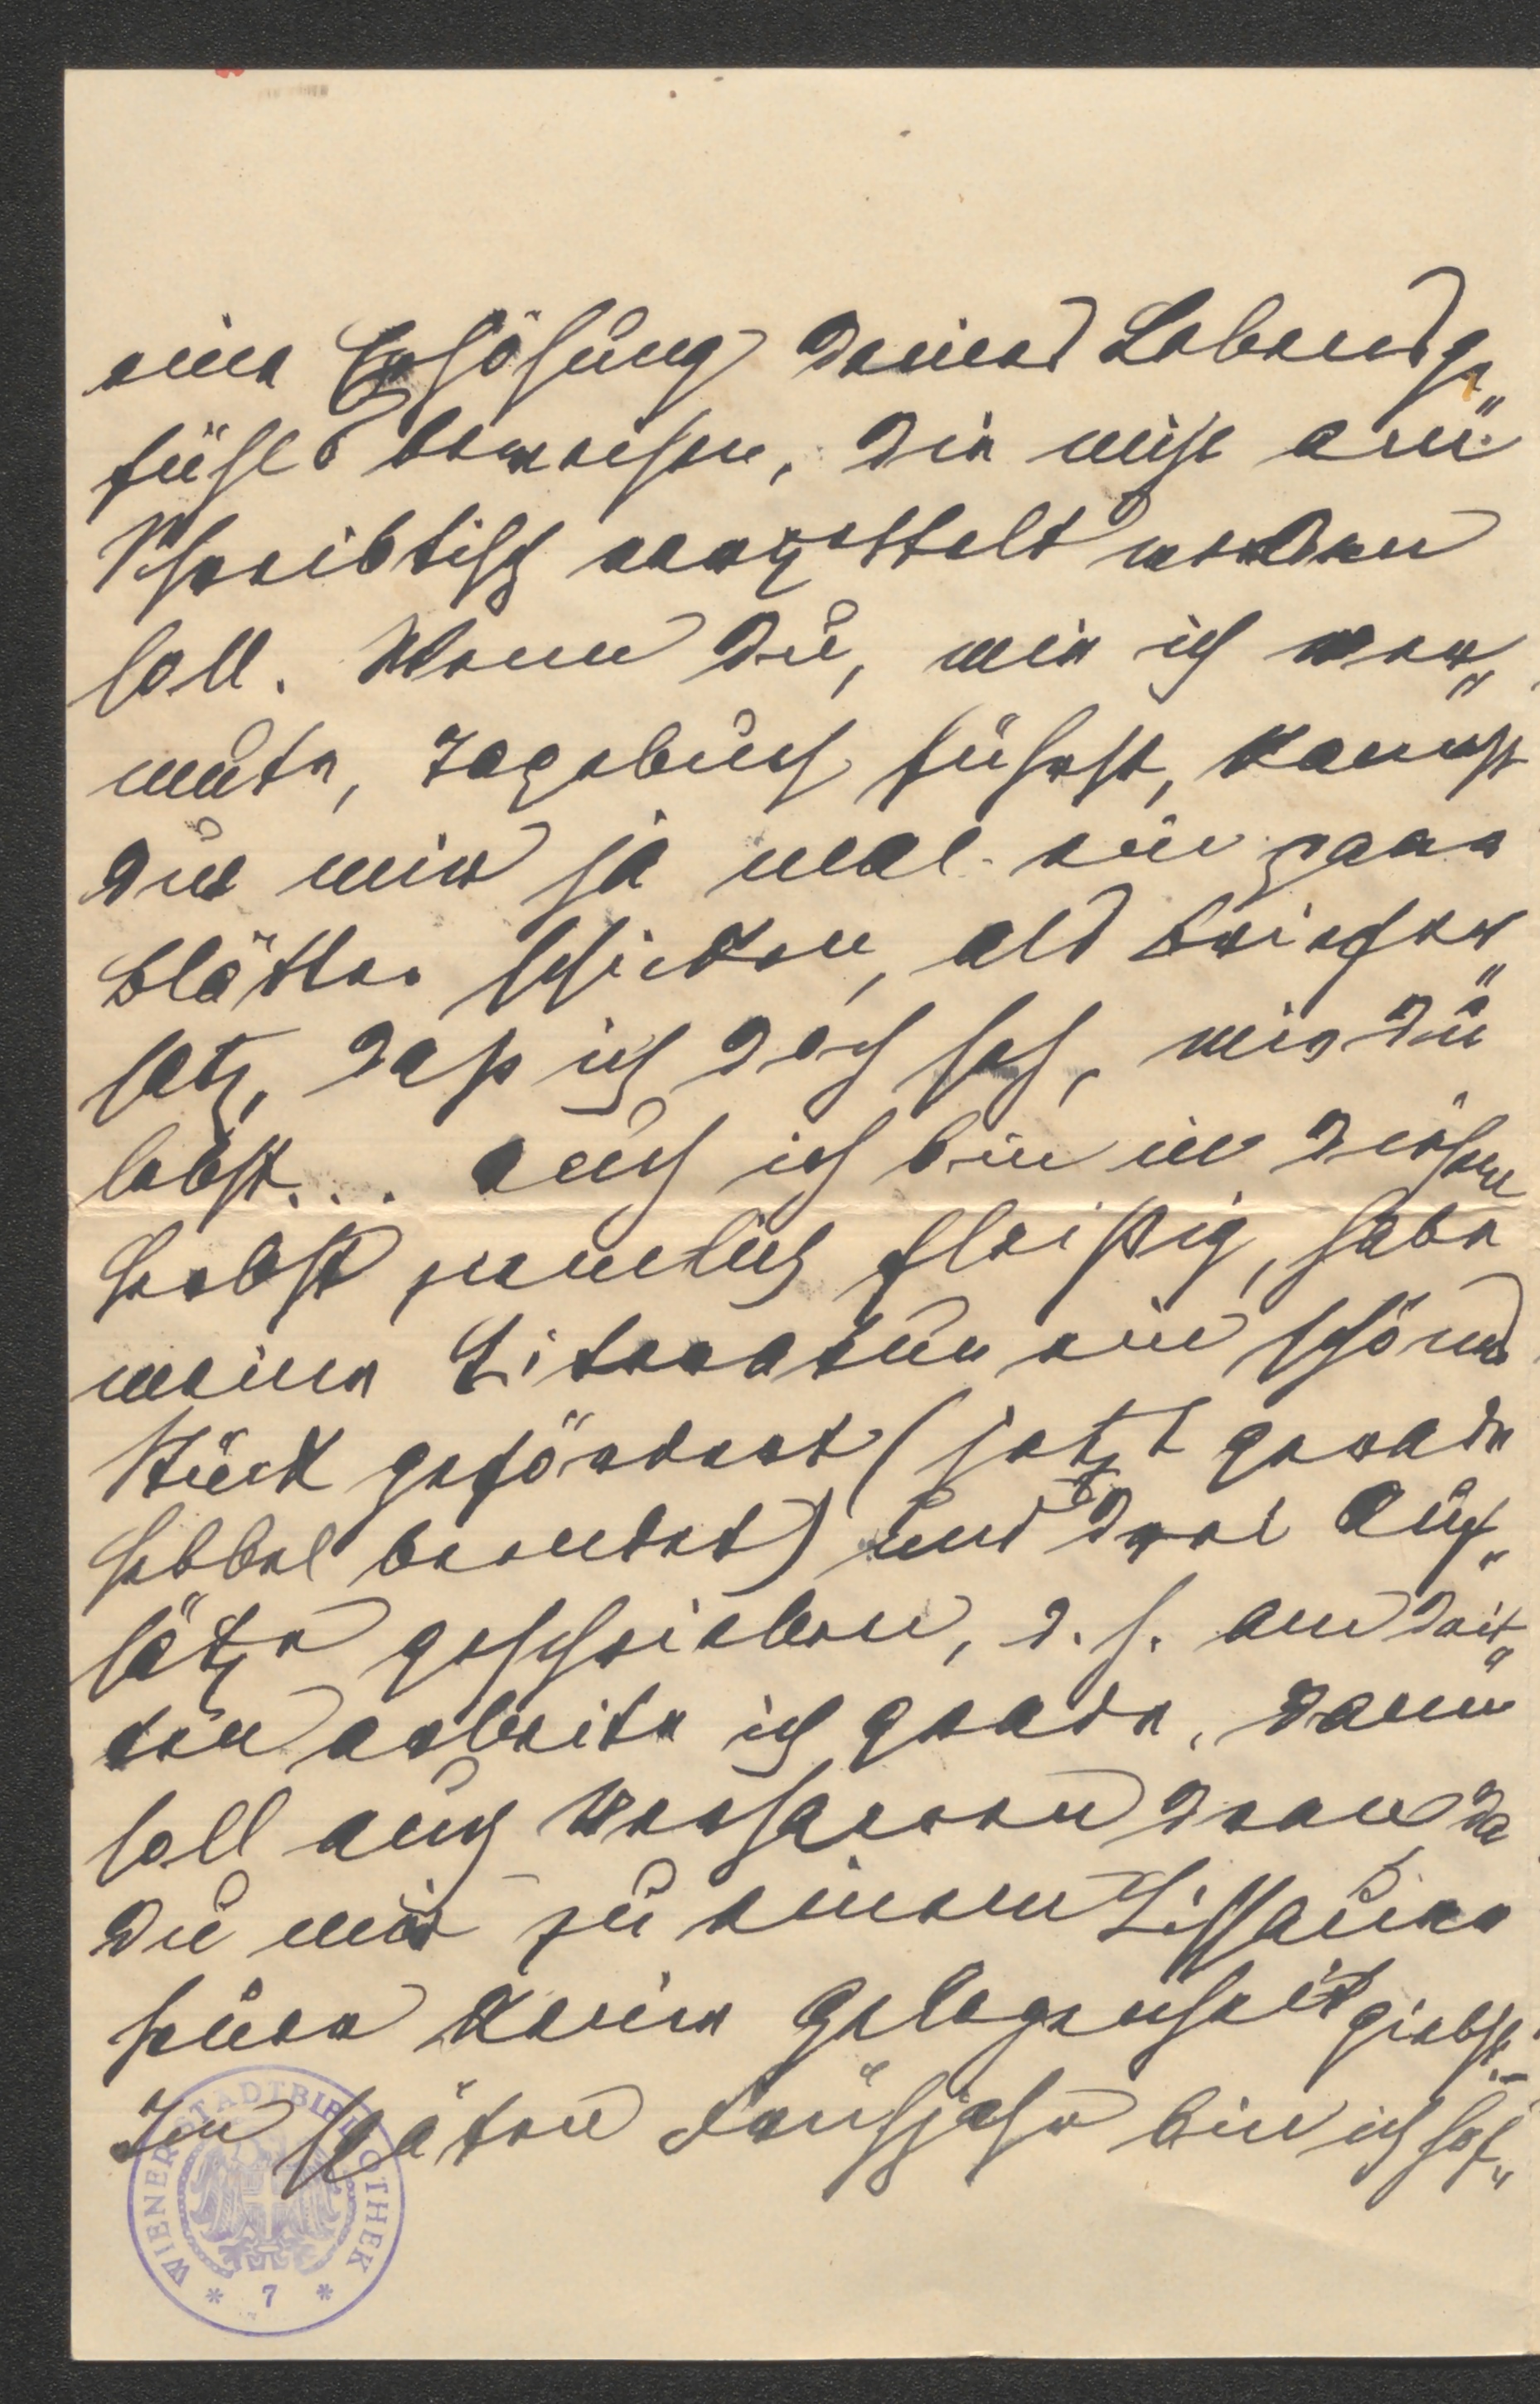 eine Erhöhung Deines Lebensge„
fühls beweisen, die nicht am
Schreibtisch verzettelt werden
soll. Wenn Du, wie ich ver„
mute, Tagebuch führst, kannst
Du mir ja mal ein paar
Blätter schicken, als Brieffer„
satz, daß ich doch seh, wie Du
lebst... Auch ich bin in diesem
Herbst ziemlich fleißig, habe
meine Literatur ein schönes
Stück gefördert (jetzt gerade
Hebbel beendet) und drei Auf„
sätze geschrieben, d. h. am drit„
ten arbeite ich grade, dann
soll auch Verhaeren dran, da
Du mir zu einem Lissauer
keine Gelegenheit giebst.
Im späten Frühjahr bin ich hof„
WIENER STADTBIBLIOTHEK
* 7 *